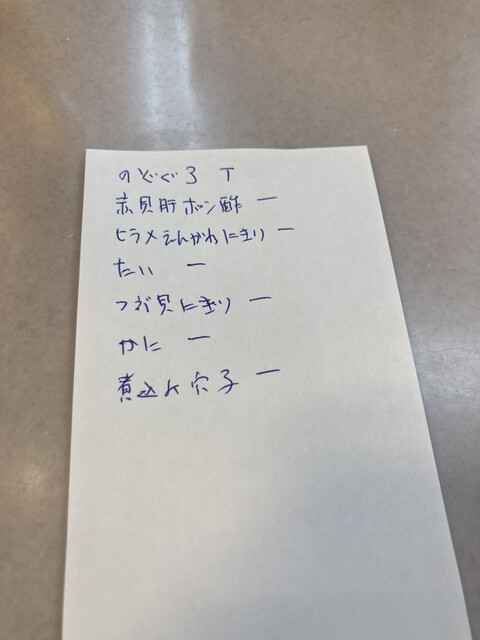 のどぐろ T
赤貝肝ポン酢 一
ヒラメえんがわにぎり 一
たい 一
つぶ貝にぎり 一
かに 一
煮込み穴子 一